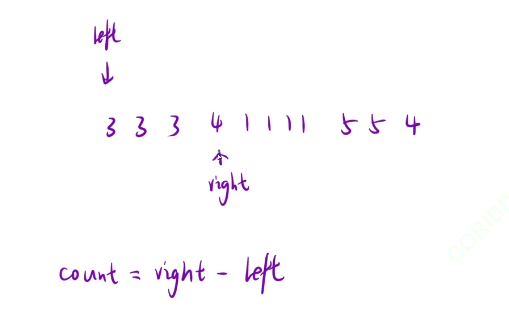 left
↓
3 3 3 4 1 1 1 1 5 5 4
↑
right
count = right - left
CORIDI